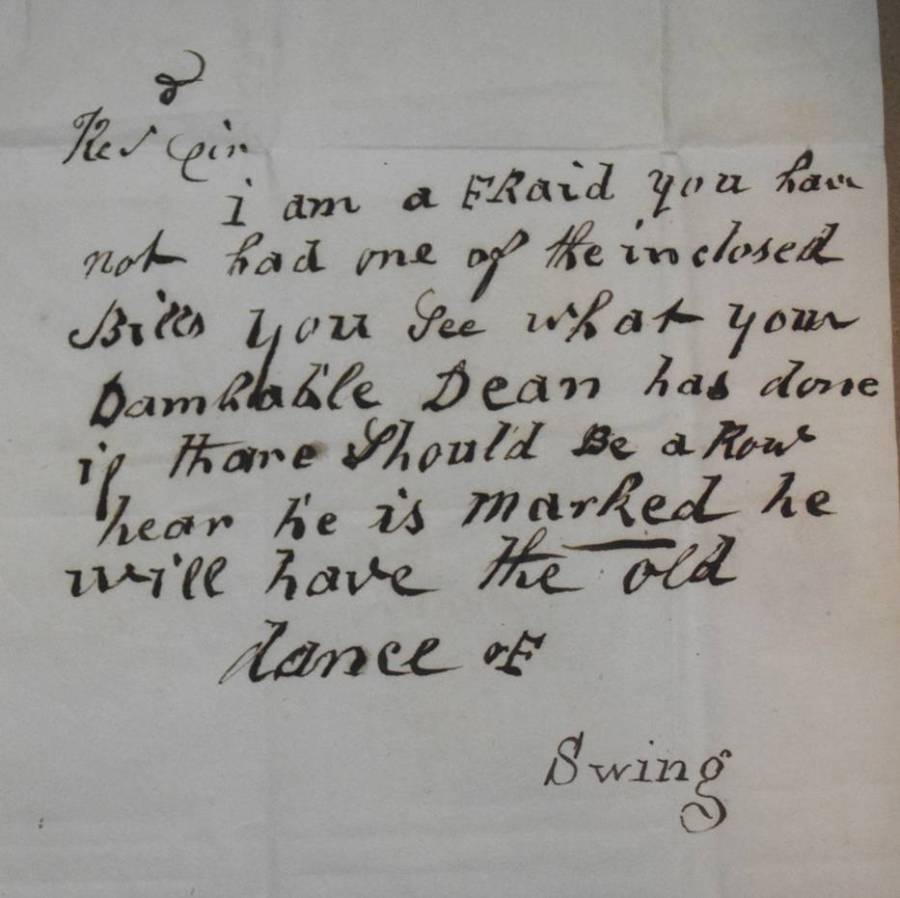 Resd Sir
i am a FRaid you have
not had one of the inclosed
Bills you See what your
Damhable Dean has done
if thare Should Be a Row
hear he is marked he
will have the old
dance oF
Swing